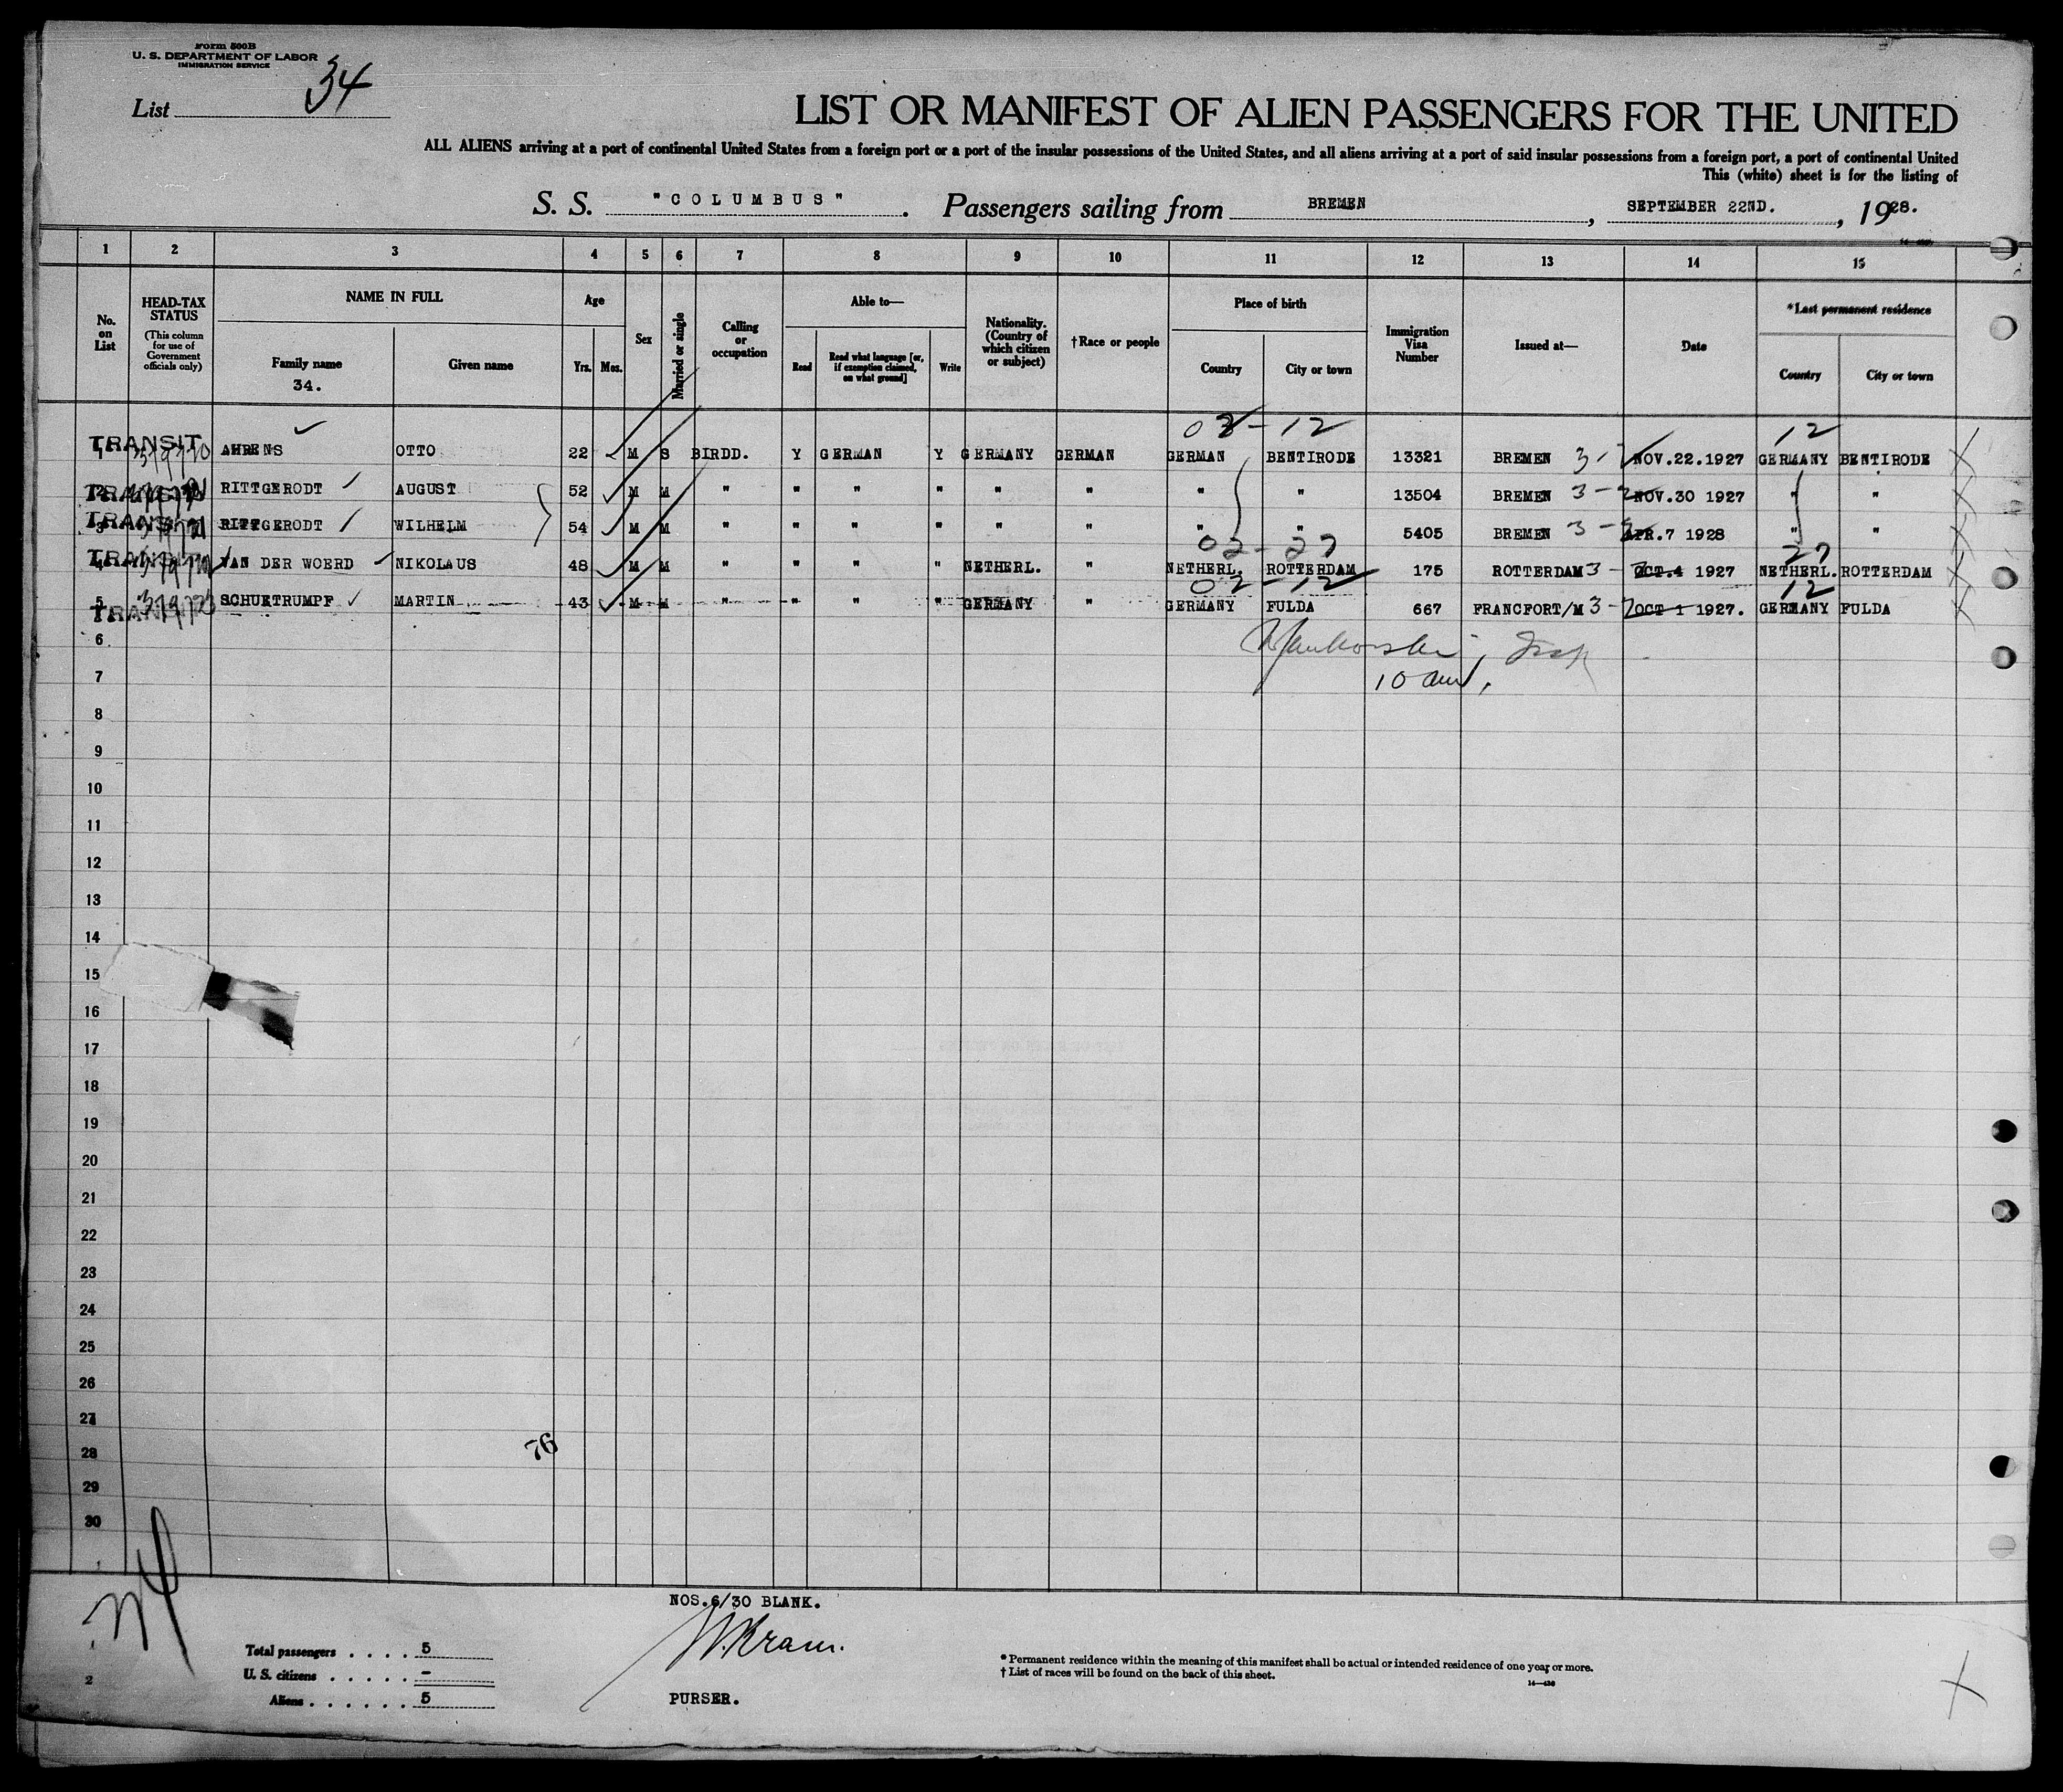 Form 500B
U. S. DEPARTMENT OF LABOR
IMMIGRATION SERVICE
List 34
LIST OR MANIFEST OF ALIEN PASSENGERS FOR THE UNITED
ALL ALIENS arriving at a port of continental United States from a foreign port or a port of the insular possessions of the United States, and all aliens arriving at a port of said insular possessions from a foreign port, a port of continental United
This (white) sheet is for the listing of
S. S. "COLUMBUS". Passengers sailing from BREMEN, SEPTEMBER 22ND., 1928.
1 2 3 4 5 6 7 8 9 10 11 12 13 14 15
No. on List
HEAD-TAX STATUS
(This column for use of Government officials only)
NAME IN FULL
Family name
34.
Given name
Age
Yrs. Mos.
Sex
Married or single
Calling or occupation
Able to—
Read
Read what language [or, if exemption claimed, on what ground]
Write
Nationality. (Country of which citizen or subject)
†Race or people
Place of birth
Country
City or town
Immigration Visa Number
Issued at—
Date
*Last permanent residence
Country
City or town
02-12 12
1 TRANSIT AHRENS OTTO 22 M S BIRDD. Y GERMAN Y GERMANY GERMAN GERMAN BENTIRODE 13321 BREMEN 3-2 NOV.22.1927 GERMANY BENTIRODE
2 TRANSIT RITTGERODT AUGUST 52 M M " " " " " " " " 13504 BREMEN 3-2 NOV.30 1927 " "
3 TRANSIT RITTGERODT WILHELM 54 M M " " " " " " " " 5405 BREMEN 3-2 APR.7 1928 " "
02-27 27
4 TRANSIT VAN DER WOERD NIKOLAUS 48 M M " " " " NETHERL. " NETHERL. ROTTERDAM 175 ROTTERDAM 3-2 OCT.4 1927 NETHERL. ROTTERDAM
02-12 12
5 TRANSIT SCHUETRUMPF MARTIN 43 M M " " " " GERMANY " GERMANY FULDA 667 FRANCFORT/M 3-2 OCT 1 1927. GERMANY FULDA
6
7 10 am,
8
9
10
11
12
13
14
15
16
17
18
19
20
21
22
23
24
25
26
27
28
29
30
76
NOS.6/30 BLANK.
W.Kram.
PURSER.
1
2
Total passengers . . . . 5
U. S. citizens . . . . . –
Aliens . . . . . . 5
* Permanent residence within the meaning of this manifest shall be actual or intended residence of one year or more.
† List of races will be found on the back of this sheet.